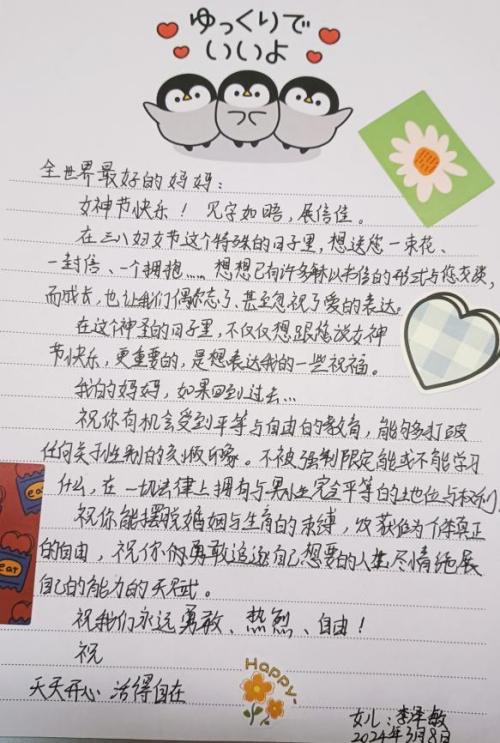 ゆっくりで
いいよ
全世界最好的妈妈：
女神节快乐！见字如晤，展信佳。
在三八妇女节这个特殊的日子里，想送您一束花、
一封信、一个拥抱……想想已有许多年没以书信的形式与您交谈，
而成长，也让我们偶尔忘了、甚至忽视了爱的表达。
在这个神圣的日子里，不仅仅想跟您说女神
节快乐，更重要的，是想表达我的一些祝福。
我的妈妈，如果回到过去…
祝你有机会受到平等与自由的教育，能够打破
任何关于性别的刻板印象。不被强制限定能或不能学习
什么，在一切法律上拥有与男性完全平等的地位与权利
祝你能摆脱婚姻与生育的束缚，收获作为个体真正
的自由，祝你勇敢追逐自己想要的人生尽情绝展
自己的能力的天赋。
祝我们永远勇敢、热烈、自由！
祝
天天开心 活得自在
Happy
女儿：李泽敏
2024年3月8日
eat